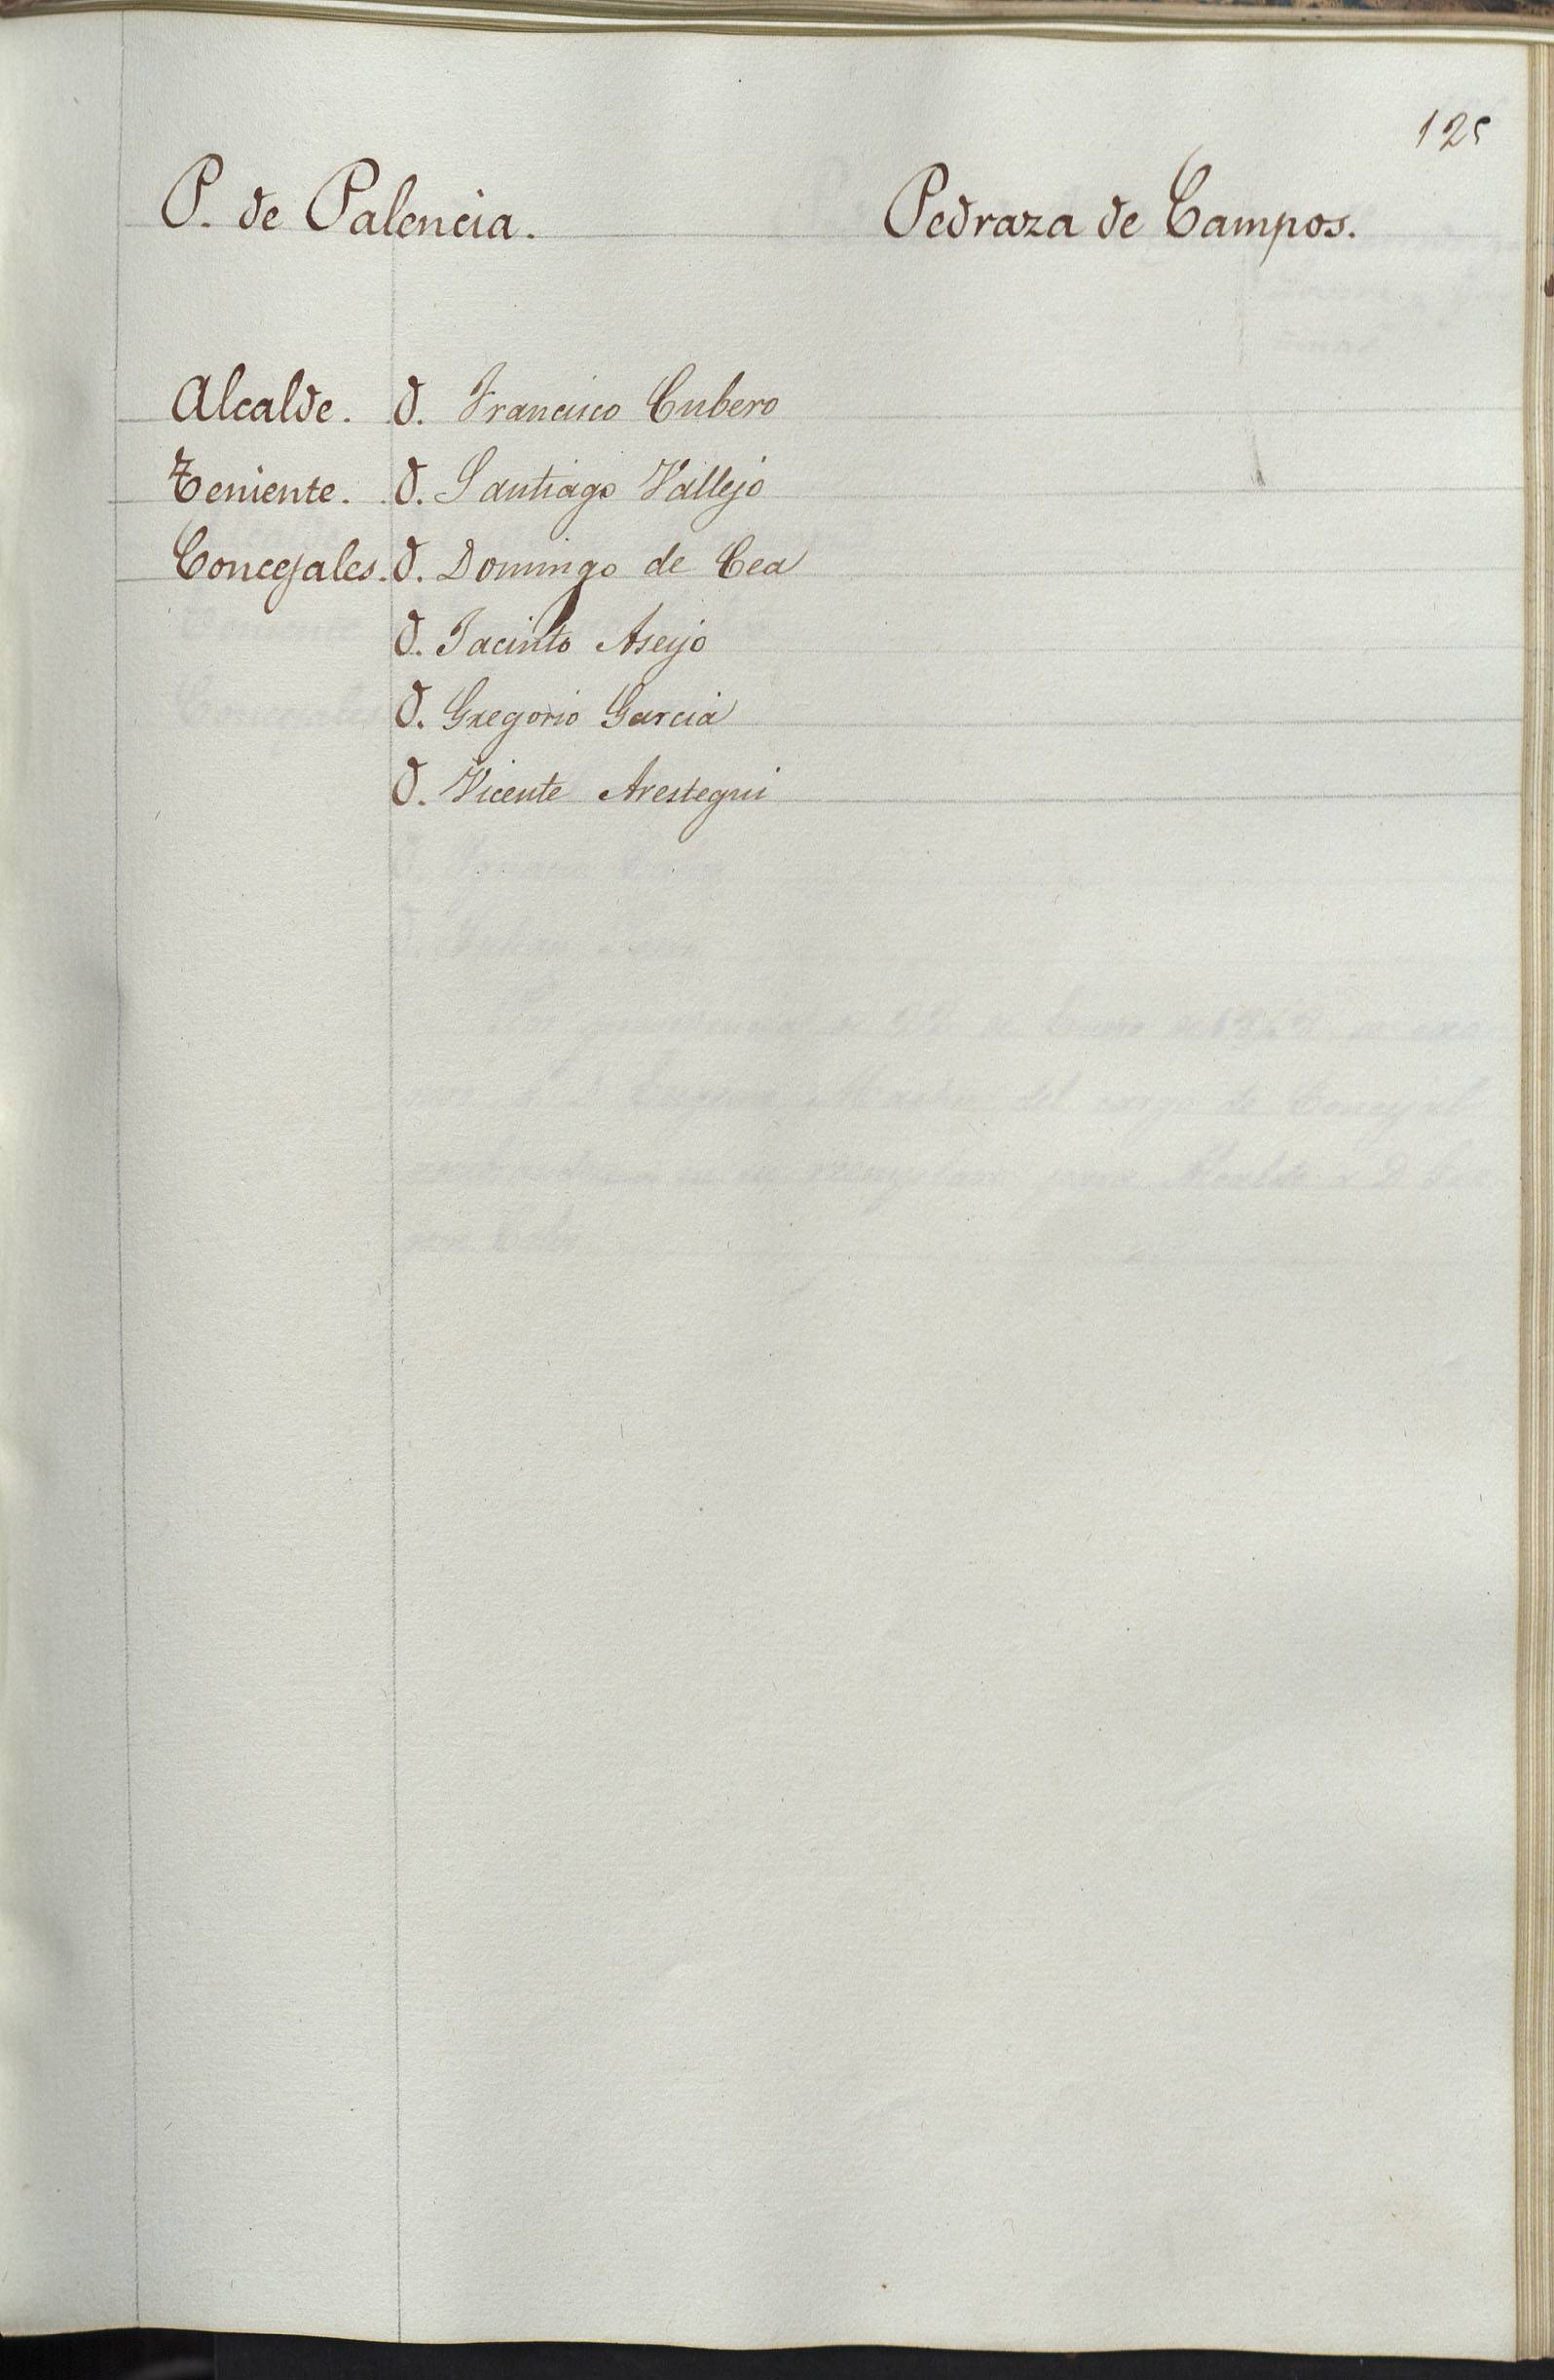 125
P. de Palencia. Pedraza de Campos.
Alcalde. D. Francisco Cubero
Teniente. D. Santiago Vallejo
Concejales. D. Domingo de Cea
D. Jacinto Aseijo
D. Gregorio Garcia
D. Vicente Arestegui